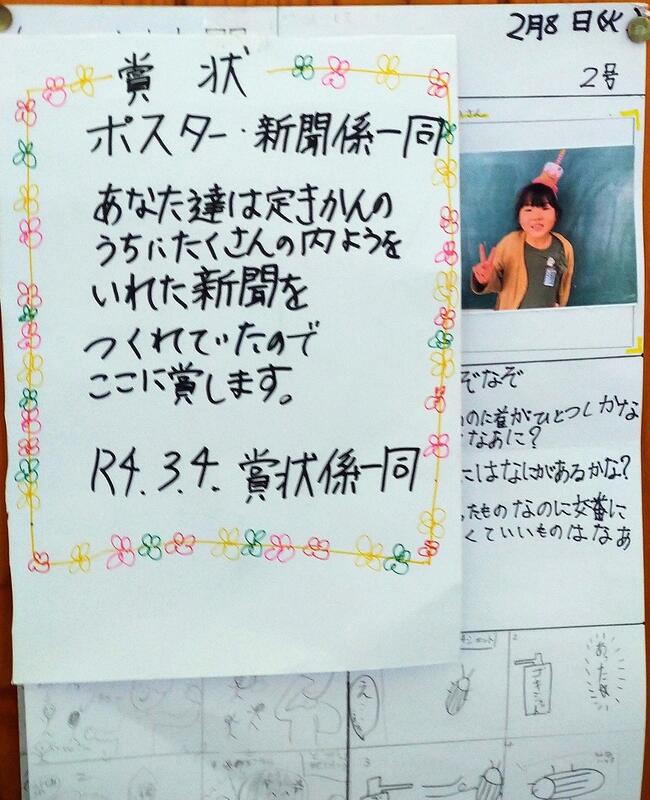 賞状
ポスター・新聞係一同
あなた達は定きかんの
うちにたくさんの内ようを
いれた新聞を
つくれていたので
ここに賞します。
R4.3.4.賞状係一同
2月8日(火)
2号
さん
ぞなぞ
のに首がひとつしかな
なあに?
にはなにがあるかな?
たものなのに交番に
くていいものはなあ
2
あったな
え
3